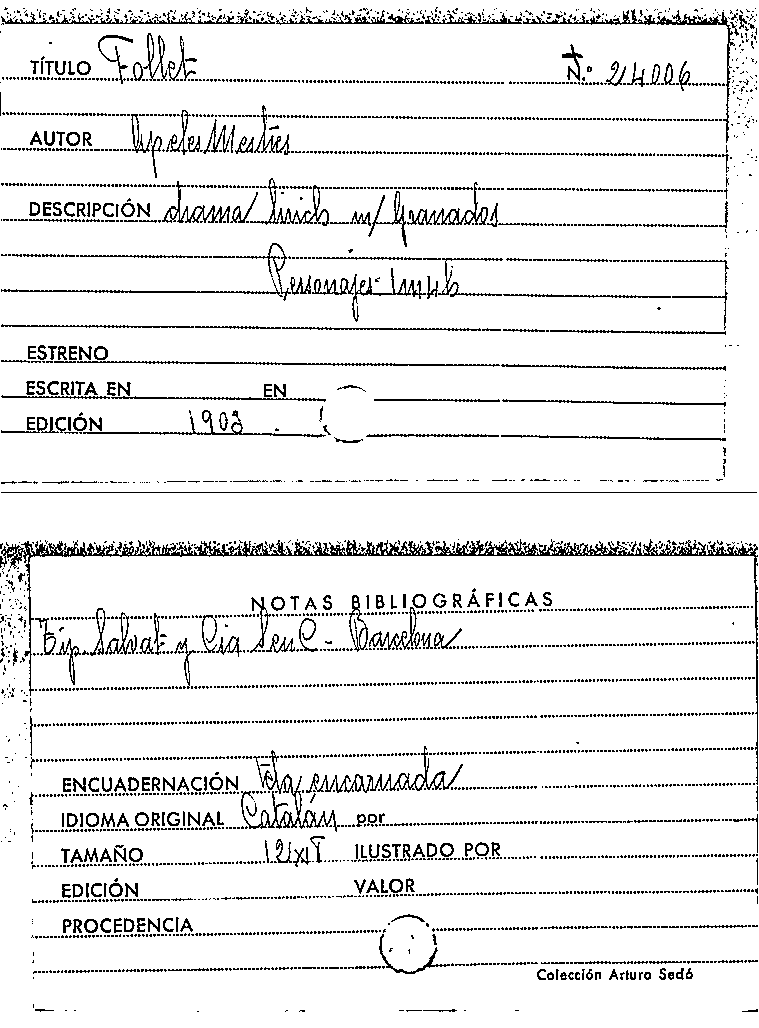 TÍTULO Follet N.º 24006
AUTOR Apeles Mestres
DESCRIPCIÓN drama lírich m/ Granados
Personajes
ESTRENO
ESCRITA EN EN
EDICIÓN 1903
NOTAS BIBLIOGRÁFICAS
Tip. Salvat y Cia Sen C - Barcelona
ENCUADERNACIÓN Tela encarnada
IDIOMA ORIGINAL Catalán por
TAMAÑO ILUSTRADO POR
EDICIÓN VALOR
PROCEDENCIA
Colección Arturo Sedó